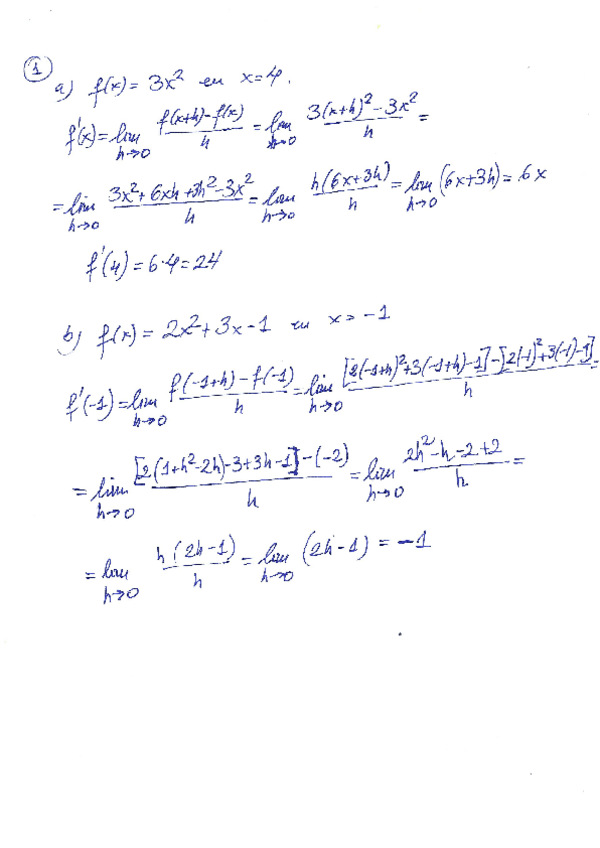 1
a) f(x) = 3x² en x=4.
f'(x) = lim h→0 (f(x+h)-f(x))/h = lim h→0 (3(x+h)²-3x²)/h =
= lim h→0 (3x²+6xh+3h²-3x²)/h = lim h→0 (h(6x+3h))/h = lim h→0 (6x+3h) = 6x
f'(4) = 6·4 = 24
b) f(x) = 2x²+3x-1 en x=-1
f'(-1) = lim h→0 (f(-1+h)-f(-1))/h = lim h→0 ([2(-1+h)²+3(-1+h)-1]-[2(-1)²+3(-1)-1])/h =
= lim h→0 ([2(1+h²-2h)-3+3h-1]-(-2))/h = lim h→0 (2h²-h-2+2)/h =
= lim h→0 (h(2h-1))/h = lim h→0 (2h-1) = -1